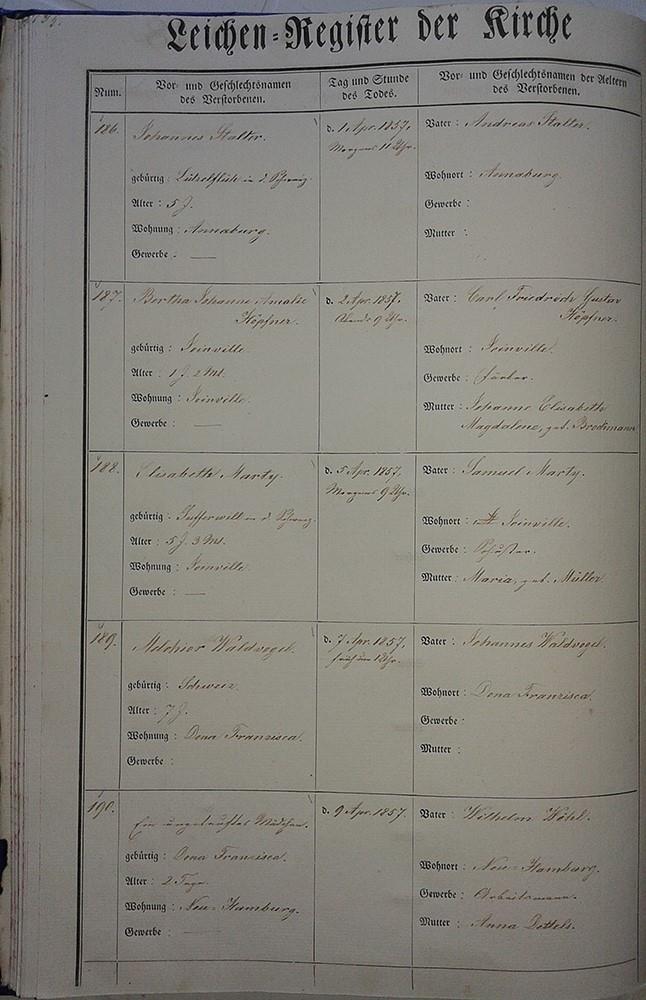 Leichen-Register der Kirche
Num.
Vor- und Geschlechtsnamen
des Verstorbenen.
Tag und Stunde
des Todes.
Vor- und Geschlechtsnamen der Aeltern
des Verstorbenen.
186.
Johannes Stalter.
gebürtig: Lützelflüh in d. Schweiz.
Alter: 5 J.
Wohnung: Annaburg.
Gewerbe: —
d. 1 Apr. 1857,
Morgens 11 Uhr.
Vater: Andreas Stalter.
Wohnort: Annaburg.
Gewerbe:
Mutter:
187.
Bertha Johanne Amalie
Höpfner.
gebürtig: Joinville.
Alter: 1 J. 2 Mt.
Wohnung: Joinville.
Gewerbe: —
d. 2 Apr. 1857.
Abends 9 Uhr.
Vater: Carl Friedrich Gustav
Höpfner.
Wohnort: Joinville.
Gewerbe: Färber.
Mutter: Johanne Elisabeth
Magdalene, geb.
188.
Elisabeth Marty.
gebürtig: in d. Schweiz.
Alter: 5 J. 3 Mt.
Wohnung: Joinville.
Gewerbe: —
d. 5 Apr. 1857.
Morgens 9 Uhr.
Vater: Samuel Marty.
Wohnort: Joinville.
Gewerbe: Schuster.
Mutter: Maria, geb. Müller.
189.
Melchior Waldvogel.
gebürtig: Schweiz.
Alter: 7 J.
Wohnung: Dona Franzisca.
Gewerbe:
d. 7 Apr. 1857,
früh um 1 Uhr.
Vater: Johannes Waldvogel.
Wohnort: Dona Franzisca.
Gewerbe:
Mutter:
190.
Ein ungetauftes Mädchen.
gebürtig: Dona Franzisca.
Alter: 2 Tage.
Wohnung: Neu-Hamburg.
Gewerbe: —
d. 9 Apr. 1857.
Vater: Wilhelm
Wohnort: Neu-Hamburg.
Gewerbe: Arbeitsmann.
Mutter: Anna Dettels.